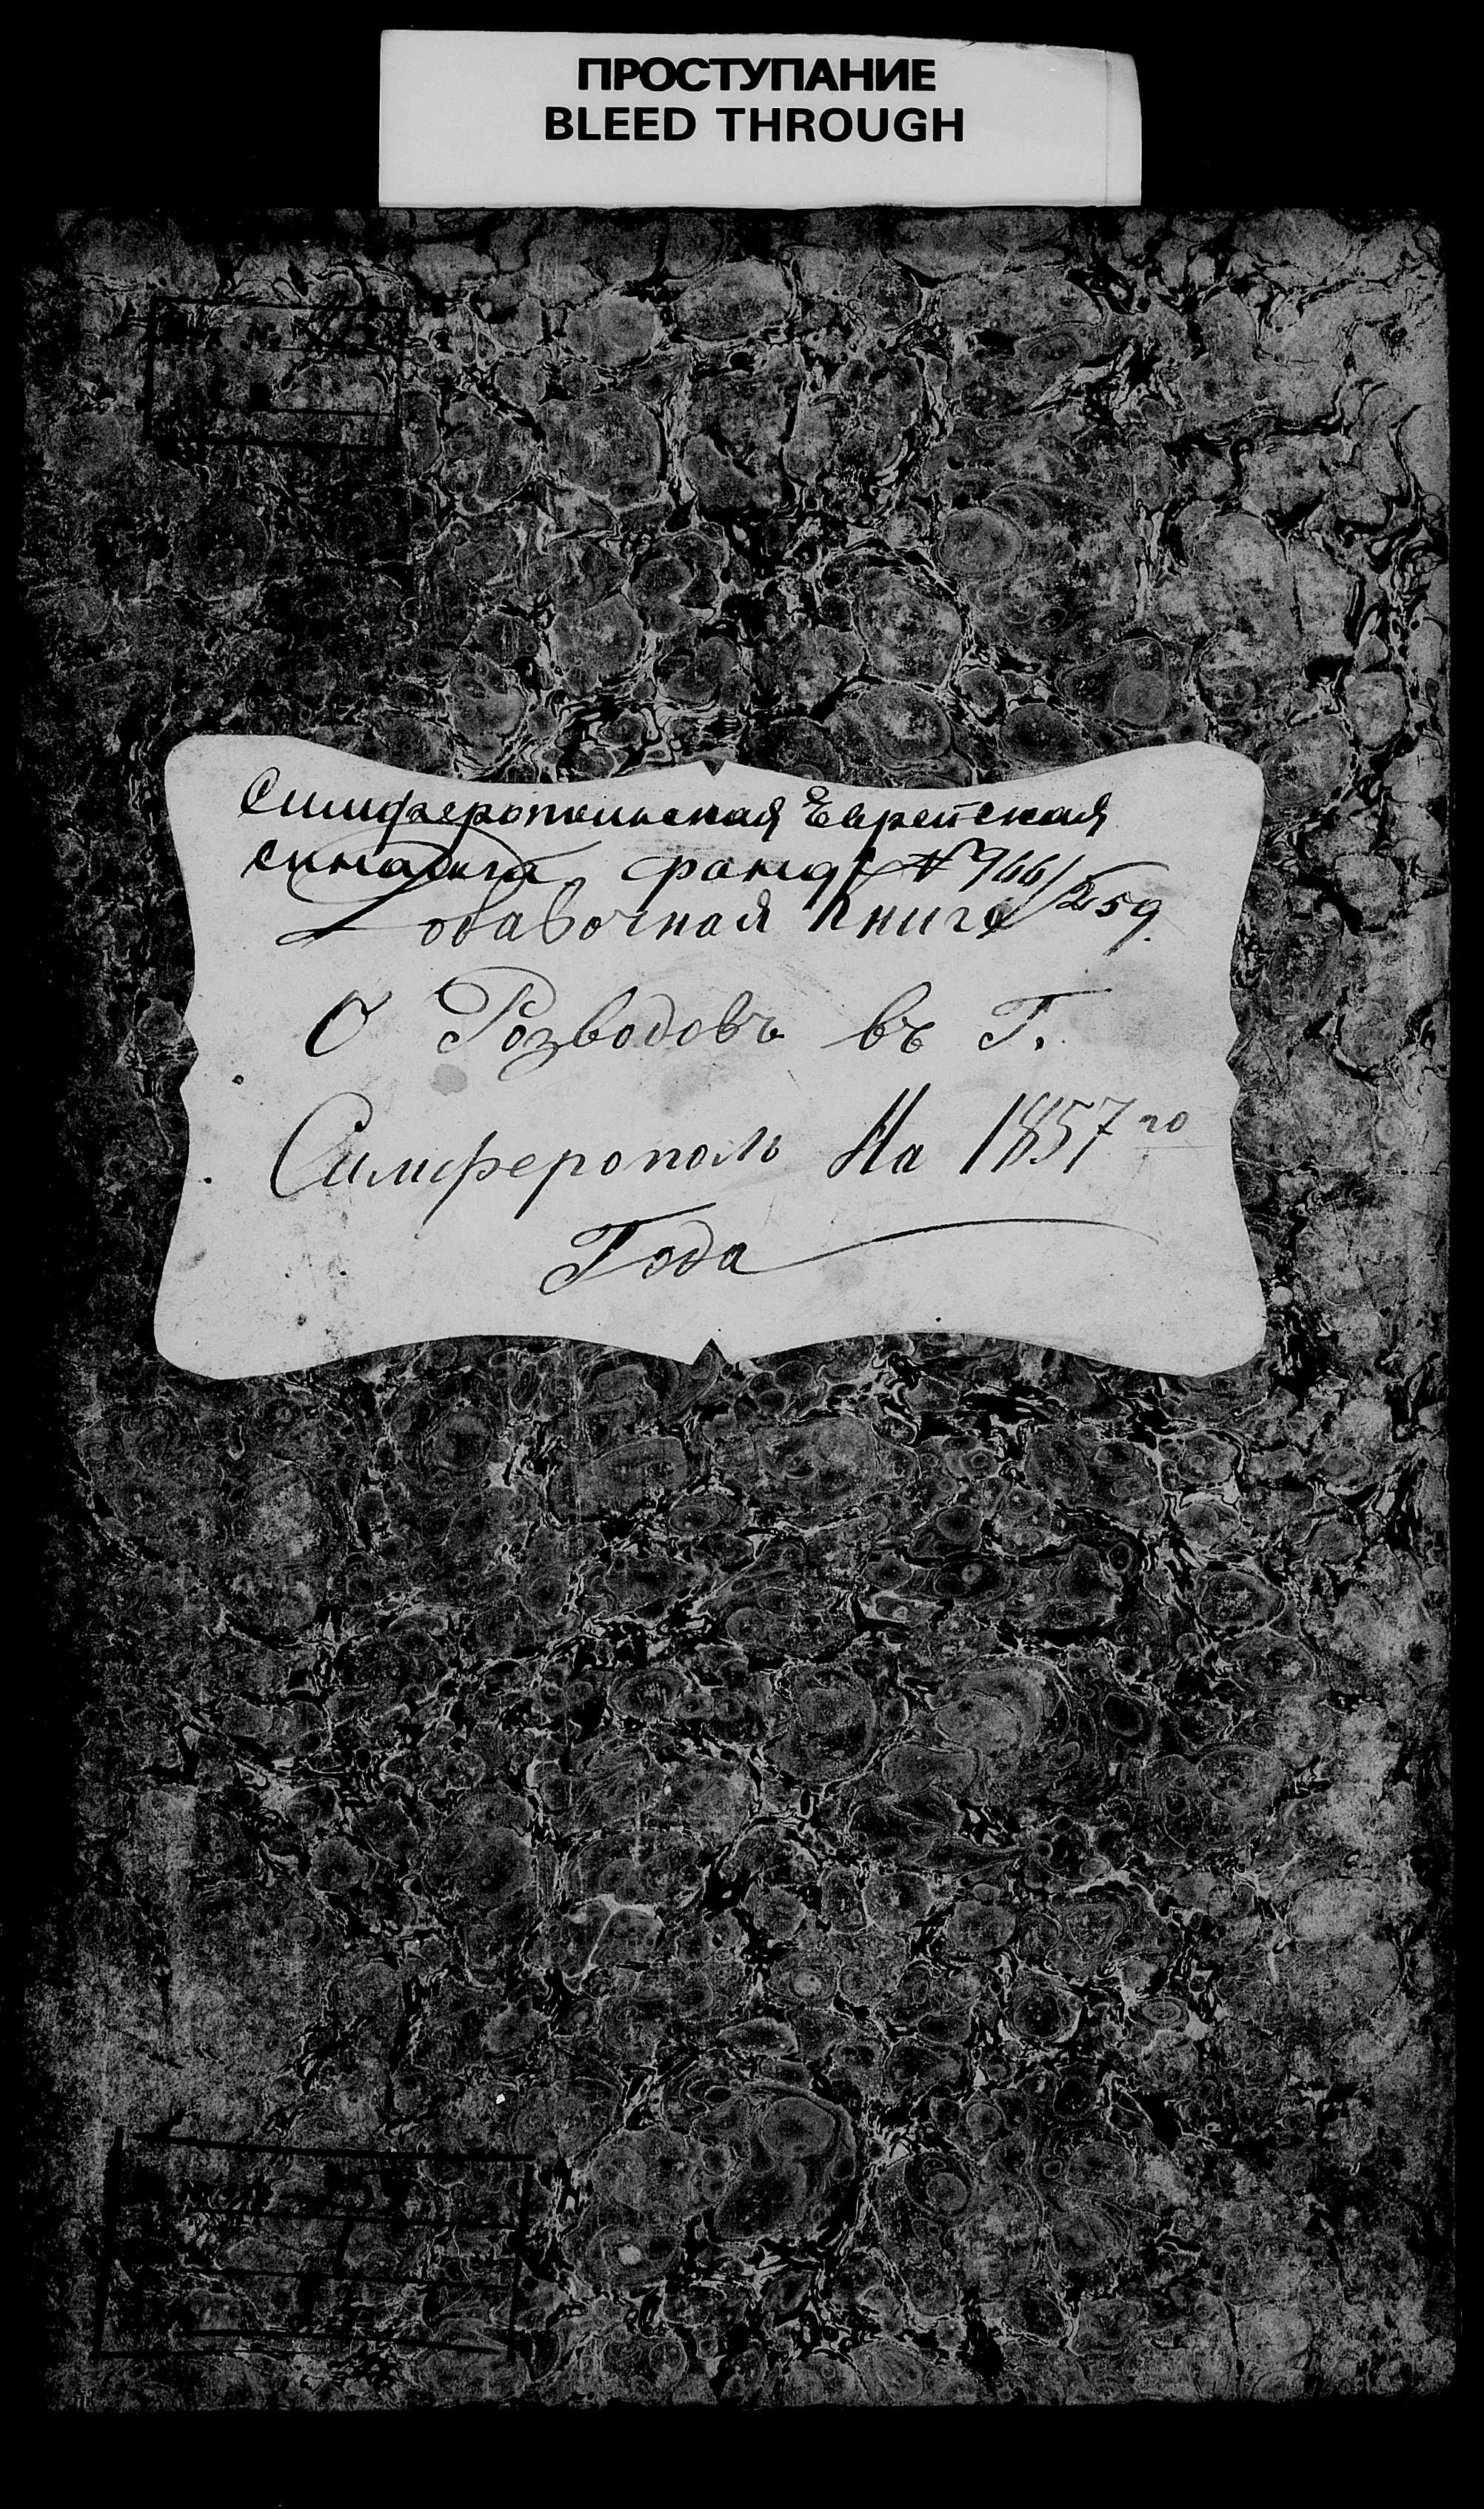 ПРОСТУПАНИЕ
BLEED THROUGH
Симферопольская Еврейская
синагога фонд № 966/259
Добавочная Книга
О Розводовъ въ Г.
Симферополь На 1857го
Года